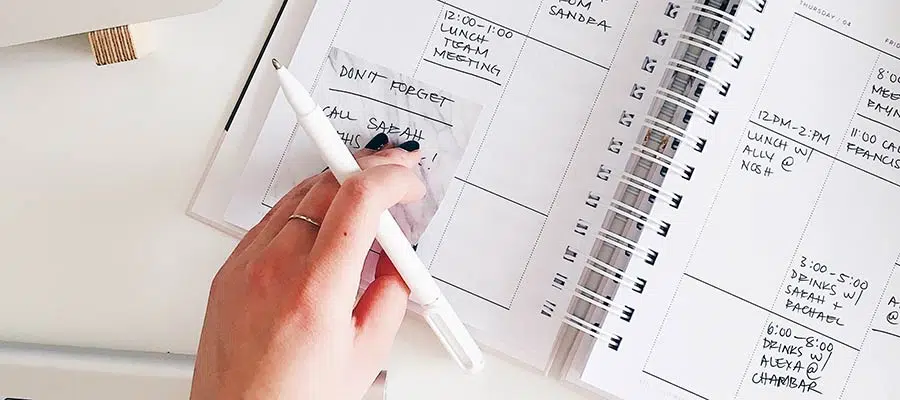 12:00-1:00
LUNCH
TEAM
MEETING
FROM
SANDRA
DON'T FORGET
CALL SARAH
THIS
!
THURSDAY / 04
12PM-2:PM
LUNCH W/
ALLY @
NOSH
3:00-5:00
DRINKS W/
SARAH +
RACHAEL
6:00-8:00
DRINKS W/
ALEXA @
CHAMBAR
FRI
8:0
MEE
11:00 CAL
FRANCIS
A
@